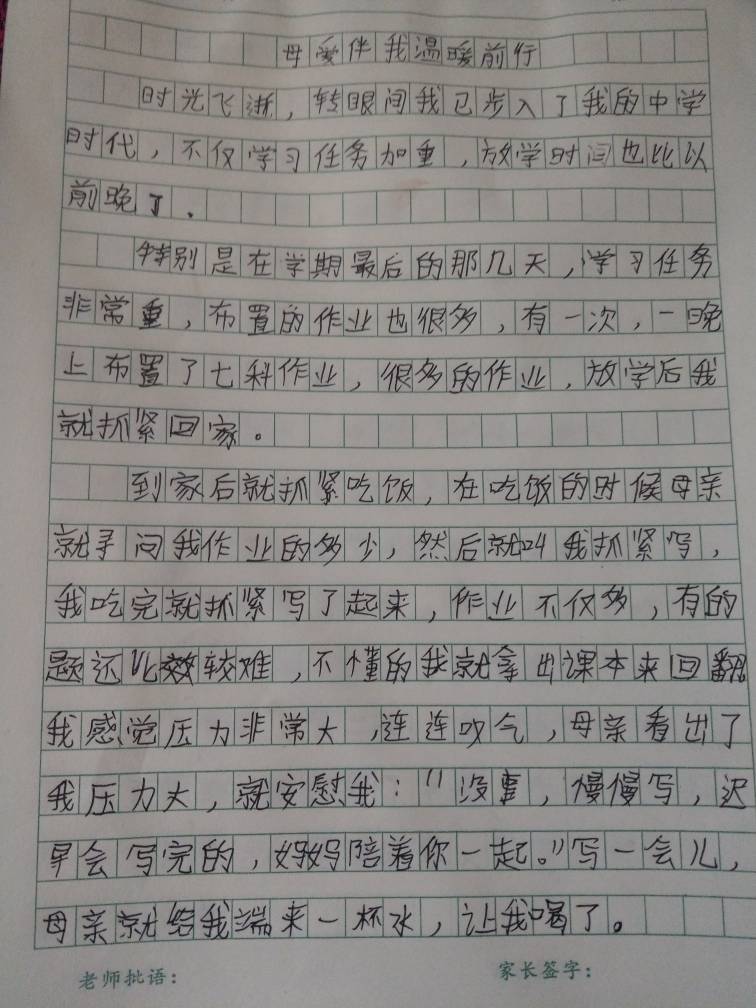 母爱伴我温暖前行
时光飞逝，转眼间我已步入了我的中学
时代，不仅学习任务加重，放学时间也比以
前晚了．
特别是在学期最后的那几天，学习任务
非常重，布置的作业也很多，有一次，一晚
上布置了七科作业，很多的作业，放学后我
就抓紧回家。
到家后就抓紧吃饭，在吃饭的时候母亲
就寻问我作业的多少，然后就叫我抓紧写，
我吃完就抓紧写了起来，作业不仅多，有的
题还比较难，不懂的我就拿出课本来回翻
我感觉压力非常大，连连叹气，母亲看出了
我压力大，就安慰我：“没事，慢慢写，迟
早会写完的，妈妈陪着你一起。”写一会儿，
母亲就给我端来一杯水，让我喝了。
老师批语：
家长签字：